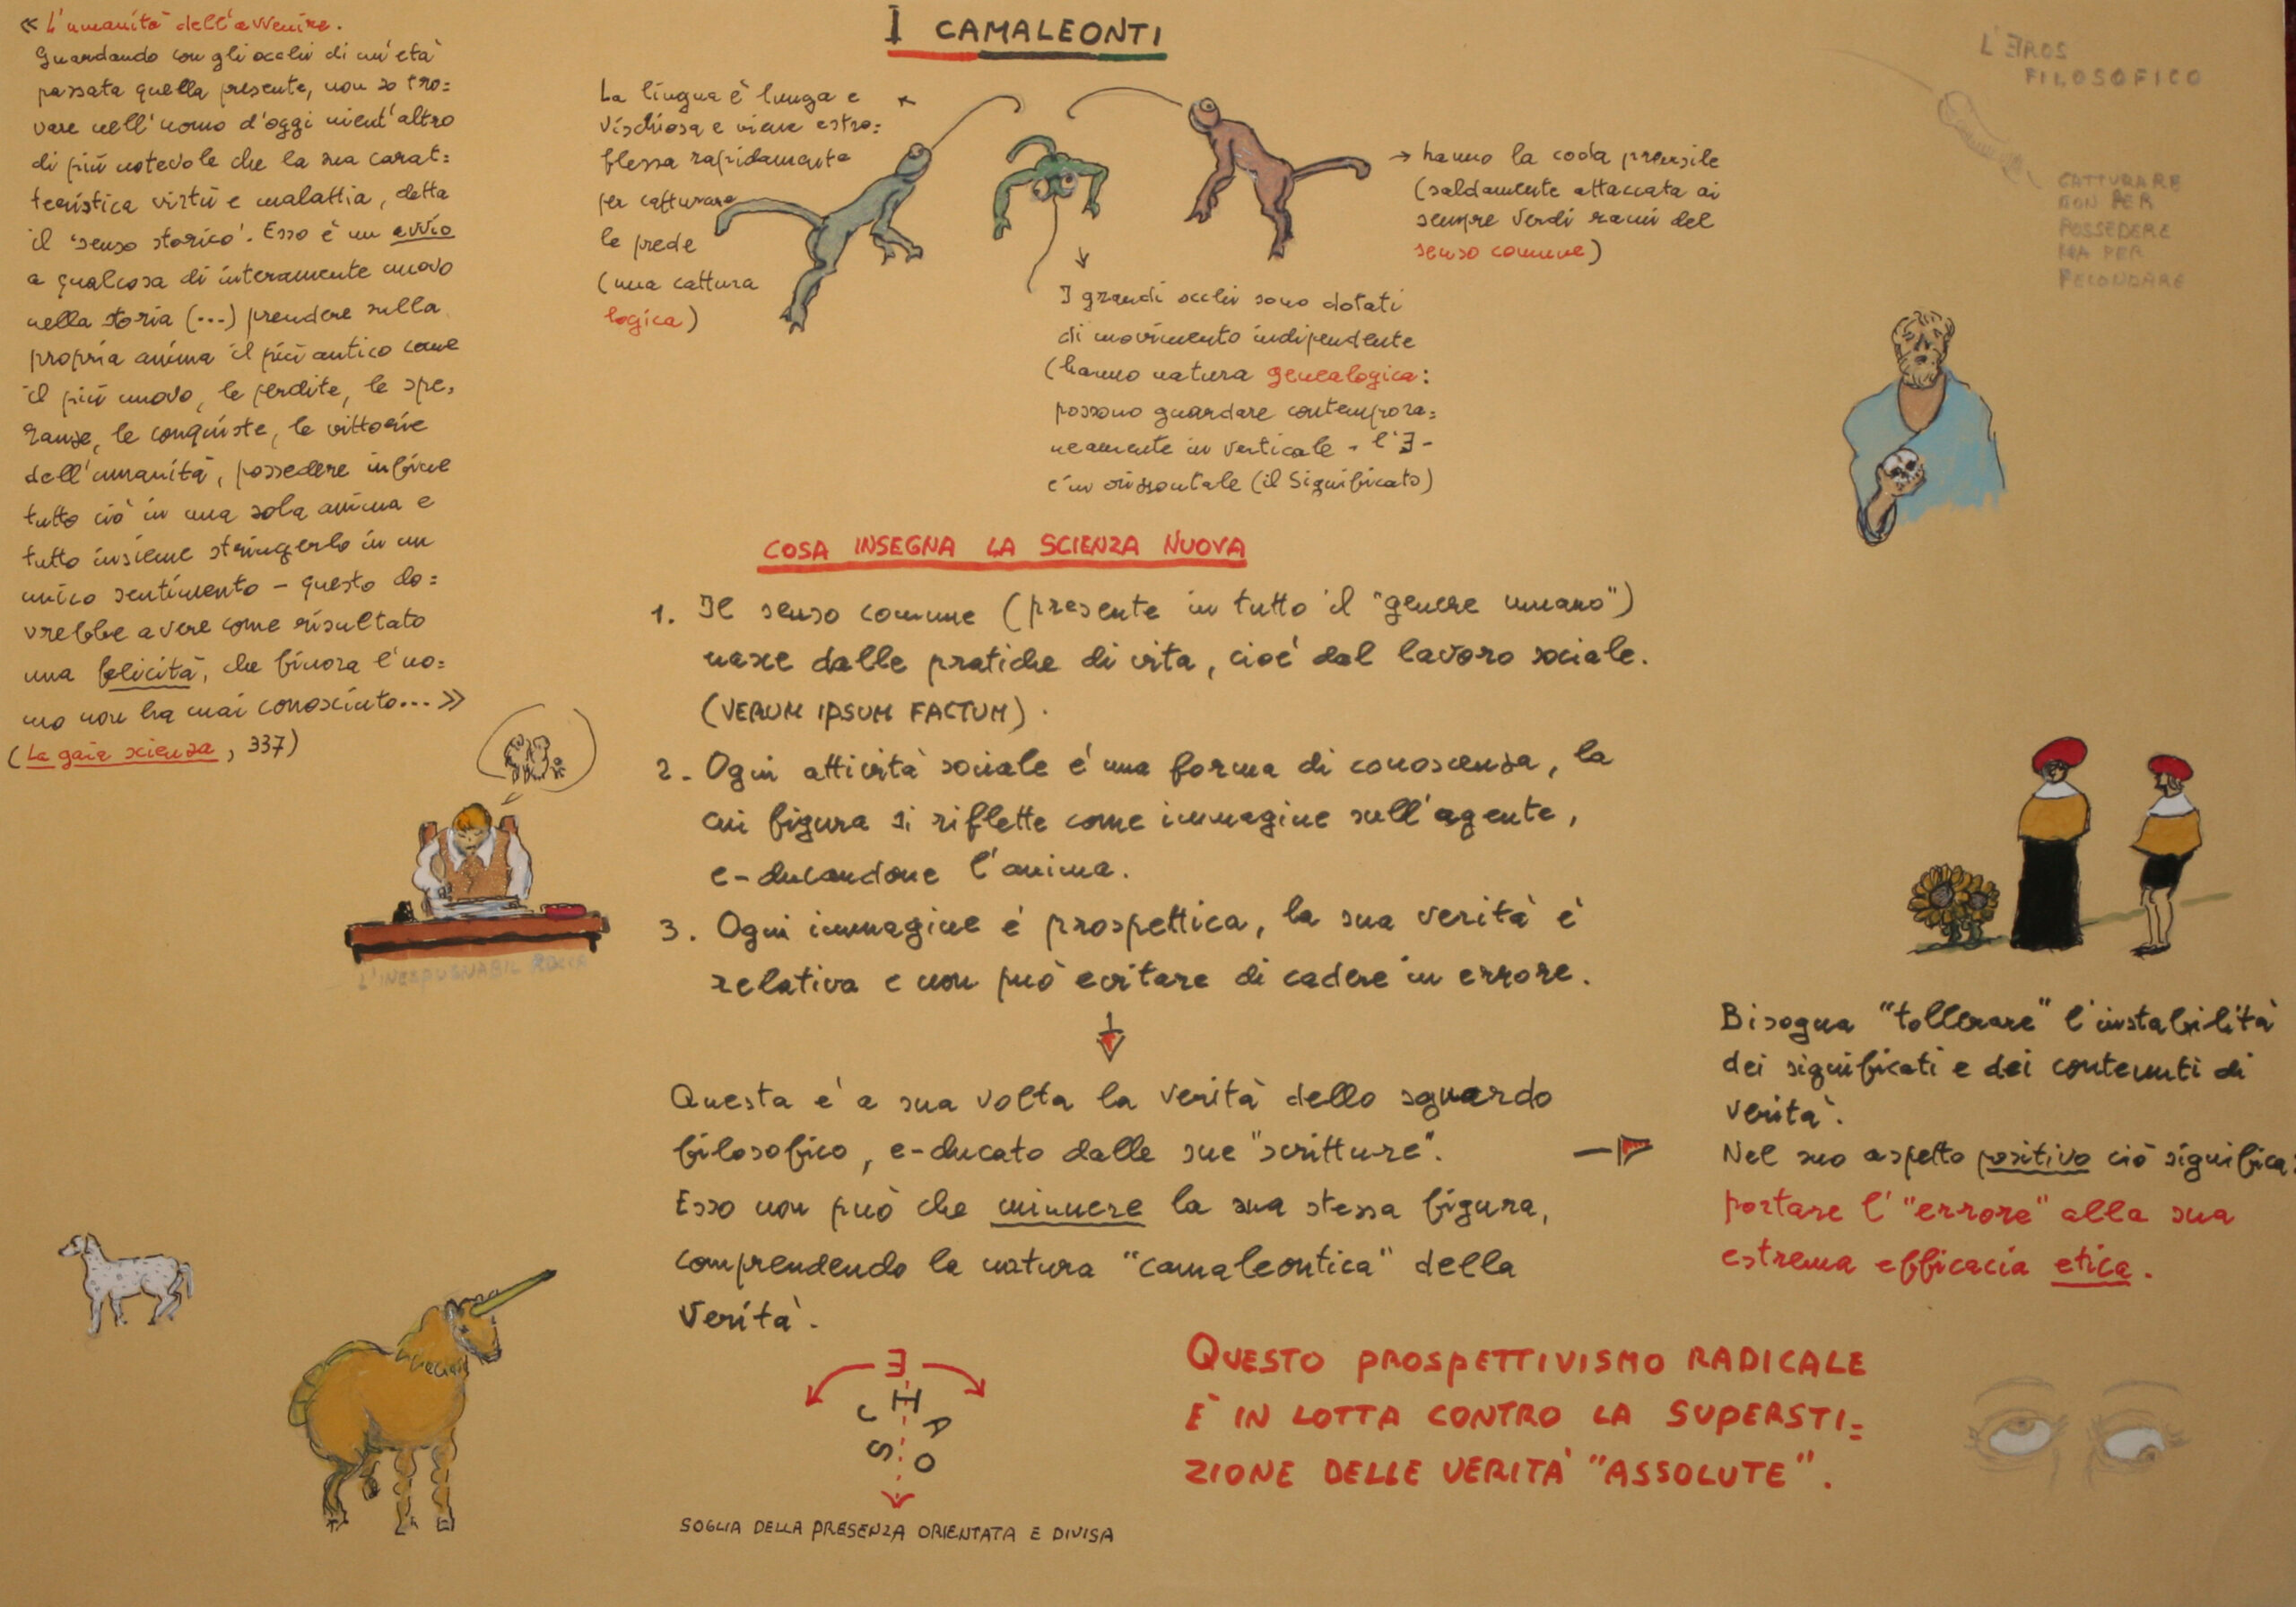 I CAMALEONTI
« L'umanità dell'avvenire.
Guardando con gli occhi di un'età
passata quella presente, non so tro=
vare nell'uomo d'oggi nient'altro
di più notevole che la sua carat=
teristica virtù e malattia, detta
il 'senso storico'. Esso è un avvio
a qualcosa di interamente nuovo
nella storia (...) prendere sulla
propria anima il più antico come
il più nuovo, le perdite, le spe,
ranze, le conquiste, le vittorie
dell'umanità, possedere infine
tutto ciò in una sola anima e
tutto insieme stringerlo in un
unico sentimento – questo do=
vrebbe avere come risultato
una felicità, che finora l'uo=
mo non ha mai conosciuto... »
(La gaia scienza, 337)
L'INESPUGNABIL ROCCA
La lingua è lunga e
vischiosa e viene estro=
flessa rapidamente
per catturare
le prede
(una cattura
logica)
I grandi occhi sono dotati
di movimento indipendente
(hanno natura genealogica:
possono guardare contempora=
neamente in verticale - l'Ǝ -
e in orizzontale (il Significato)
→ hanno la coda prensile
(saldamente attaccata ai
sempre verdi rami del
senso comune)
L'ƎROS
FILOSOFICO
CATTURARE
NON PER
POSSEDERE
MA PER
FECONDARE
COSA INSEGNA LA SCIENZA NUOVA
1. Il senso comune (presente in tutto il "genere umano")
nasce dalle pratiche di vita, cioè dal lavoro sociale.
(VERUM IPSUM FACTUM).
2. Ogni attività sociale è una forma di conoscenza, la
cui figura si riflette come immagine sull'agente,
e-ducandone l'anima.
3. Ogni immagine è prospettica, la sua verità è
relativa e non può evitare di cadere in errore.
Questa è a sua volta la verità dello sguardo
filosofico, e-ducato dalle sue "scritture".
Esso non può che minuere la sua stessa figura,
comprendendo la natura "camaleontica" della
Verità.
Bisogna "tollerare" l'instabilità
dei significati e dei contenuti di
verità.
Nel suo aspetto positivo ciò significa:
portare l'"errore" alla sua
estrema efficacia etica.
Ǝ
CHAOS
SOGLIA DELLA PRESENZA ORIENTATA E DIVISA
QUESTO PROSPETTIVISMO RADICALE
È IN LOTTA CONTRO LA SUPERSTI=
ZIONE DELLE VERITÀ "ASSOLUTE".